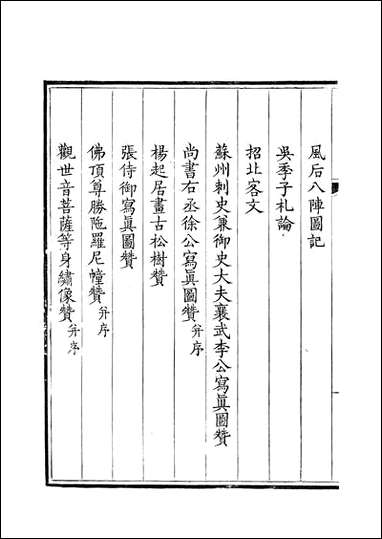 風后八陣圖記
吳季子札論
招北客文
蘇州刺史兼御史大夫襄武李公寫眞圖贊
尚書右丞徐公寫眞圖贊并序
楊起居畫古松樹贊
張侍御寫眞圖贊
佛頂尊勝陁羅尼幢贊并序
觀世音菩薩等身繡像贊并序